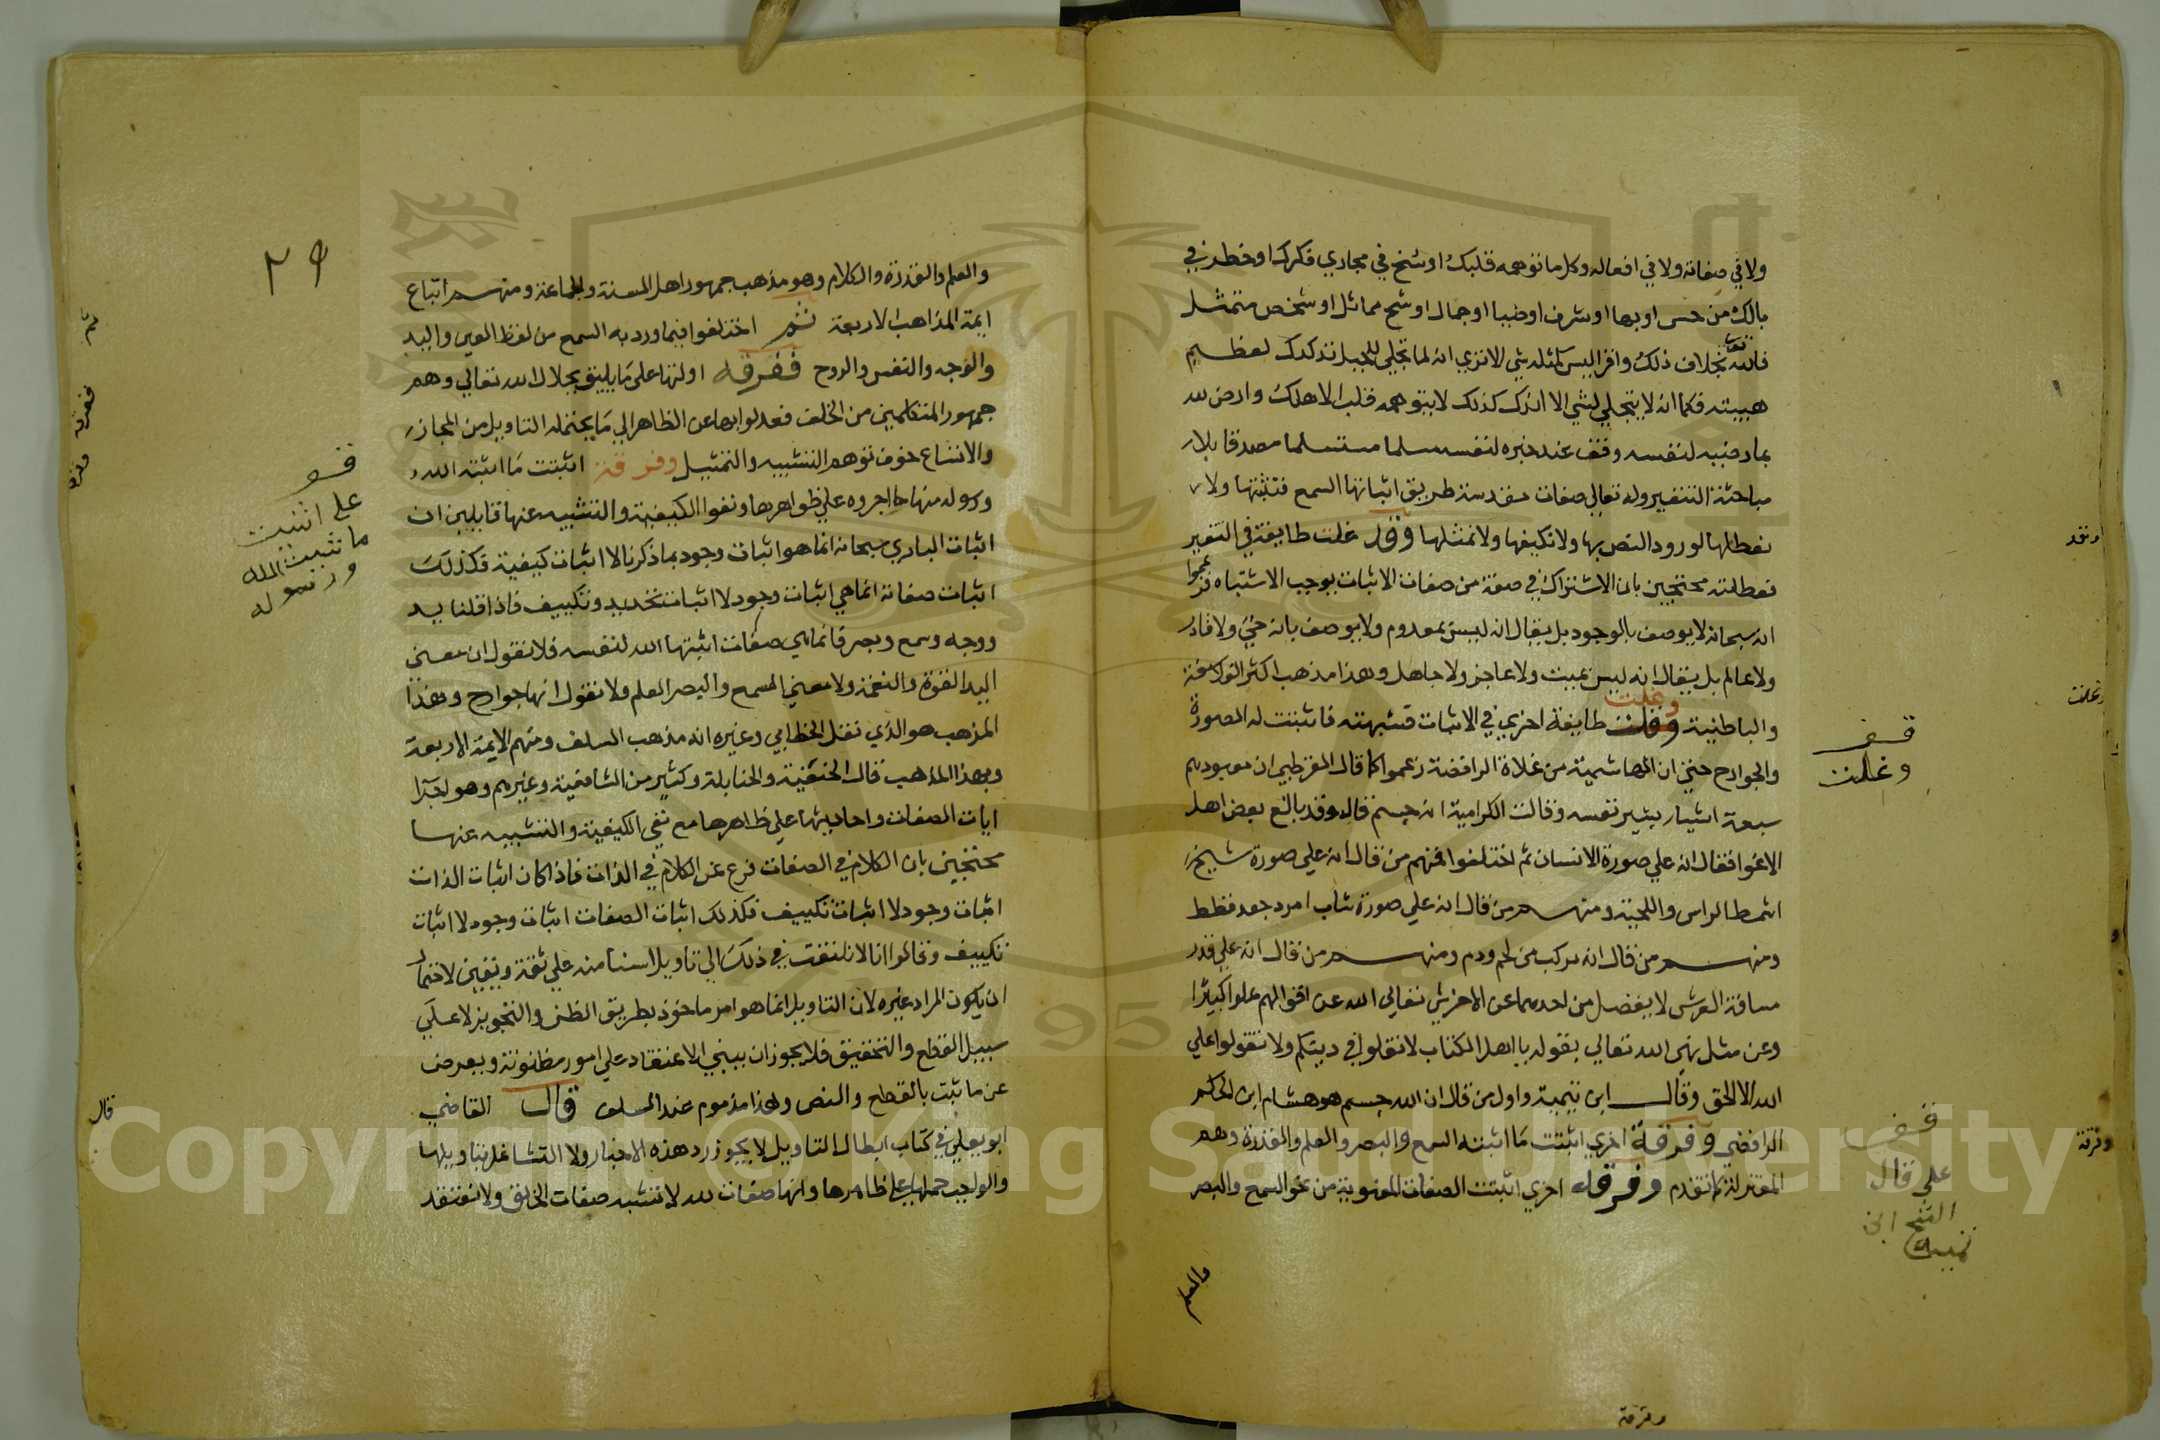 ولا في صفاته ولا في افعاله وكل ما توهمه قلبك او سنح في مجاري فكرك او خطر في
بالك من حسن او بها او شرف او ضيا او جمال او شبح مماثل او شخص متمثل
فالله تعالى بخلاف ذلك واقرا ليس كمثله شي الا تري انه لما تجلي للجبل تدكدك لعظيم
هيبته فكما انه لا يتجلي لشي الا اندك كذلك لا يتوهمه قلب الا هلك وارض لله
بما رضيه لنفسه وقف عند خبره لنفسه مسلما مستسلما مصدقا بلا
مباحثة التنقير وله تعالي صفات مقدسة طريق اثباتها السمع فنثبتها ولا
نعطلها لورود النص بها ولا نكيفها ولا نمثلها وقد غلت طايفة في النفي
فعطلته محتجين بان الاشتراك في صفة من صفات الاثبات يوجب الاشتباه فزعموا
انه سبحانه لا يوصف بالوجود بل يقال انه ليس بمعدوم ولا يوصف بانه حي ولا قادر
ولا عالم بل يقال انه ليس بميت ولا عاجز ولا جاهل وهذا مذهب اكثر الفلاسفة
والباطنية وغلت طايفة اخري في الاثبات فشبهته فاثبتت له الصورة
والجوارح حتي ان الهاشمية من غلاة الرافضة زعموا كما قال القرطبي ان معبودهم
سبعة اشبار بشبر نفسه وقالت الكرامية انه جسم قال وقد بالغ بعض اهل
الاغوا فقال انه علي صورة الانسان ثم اختلفوا فمنهم من قال انه علي صورة شيخ
اشمط الراس واللحية ومنهم من قال انه علي صورة شاب امرد جعد قطط
ومنهم من قال انه مركب من لحم ودم ومنهم من قال انه علي قدر
مسافة العرش لا يفضل من احدهما عن الاخر شي تعالي الله عن اقوالهم علوا كبيرا
وعن مثل نهي الله تعالي بقوله يا اهل الكتاب لا تغلوا في دينكم ولا تقولوا علي
الله الا الحق وقال ابن تيمية واول من قال ان الله جسم هو هشام ابن الحكم
الرافضي وفرقة اخري اثبتت ما اثبته السمع والبصر والعلم والقدرة وهم
المعتزلة كما تقدم وفرقة اخري اثبتت الصفات المعنوية من نحو السمع والبصر
والعلم
قف
وغلت
قف
علي قال
الشيخ ابن
تيمية
وفرقة
وغلت
وفرقة
والعلم والقدرة والكلام وهو مذهب جمهور اهل السنة والجماعة ومنهم اتباع
ايمة المذاهب الاربعة ثم اختلفوا فيما ورد به السمع من لفظ العين واليد
والوجه والنفس والروح ففرقة اولتها علي ما يليق بجلال الله تعالي وهم
جمهور المتكلمين من الخلف فعدلوا بها عن الظاهر الي ما يحتمله التاويل من المجاز
والاتساع خوف توهم التشبيه والتمثيل وفرقة اثبتت ما اثبته الله
ورسوله منها واجروه علي ظواهرها ونفوا الكيفية والتشبيه عنها قايلين ان
اثبات الباري سبحانه انما هو اثبات وجود بما ذكرنا لا اثبات كيفية فكذلك
اثبات صفاته انما هي اثبات وجود لا اثبات تحديد وتكييف فاذا قلنا يد
ووجه وسمع وبصر فانما هي صفات اثبتها الله لنفسه فلا نقول ان معني
اليد القوة والنعمة ولا معني السمع والبصر العلم ولا نقول انها جوارح وهذا
المذهب هو الذي نقل الخطابي وغيره انه مذهب السلف ومنهم الايمة الاربعة
وبهذا المذهب قال الحنفية والحنابلة وكثير من الشافعية وغيرهم وهو اجرا
ايات الصفات واحاديثها علي ظاهرها مع نفي الكيفية والتشبيه عنها
محتجين بان الكلام في الصفات فرع عن الكلام في الذات فاذا كان اثبات الذات
اثبات وجود لا اثبات تكييف فكذلك اثبات الصفات اثبات وجود لا اثبات
تكييف وقالوا انا لا نلتفت في ذلك الي تاويل لسنا منه علي ثقة ويقين لاحتمال
ان يكون المراد غيره لان التاويل انما هو امر ماخوذ بطريق الظن والتجويز لا علي
سبيل القطع والتحقيق فلا يجوز ان يبني الاعتقاد علي امور مظنونة ويعرض
عن ما ثبت بالقطع والنص وهذا مذموم عند السلف قال القاضي
ابو يعلي في كتاب ابطال التاويل لا يجوز رد هذه الاخبار ولا التشاغل بتاويلها
والواجب حملها علي ظاهرها وانها صفات لله لا تشبه صفات الخلق ولا نعتقد
٢٩
قف
علي اثبت
ما تثبت الله
ورسوله
ثم
ففرقة
وفرقة
قال
Copyright © King Saud University